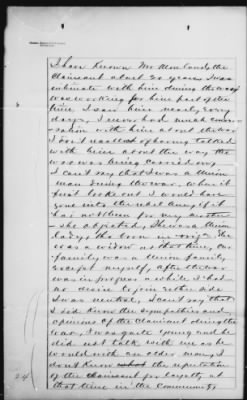 I have known Mr. the
Claimant about 20 years. I was
intimate with him during the war
was working for him part of the
time, I saw him nearly every
day, I never had much conver-
sation with him about the war
I don't recollect of having talked
with him about the way the
war was being carried on,
I can't say that I was a Union
man during the war, when it
first broke out I would have
gone into the rebel army if it
had not been for my mother
- she objected, She was a Union
lady,
was a widow at that time, our
family was a Union family
except myself, after the war
was in progress a while I had
no desire to join either side
I was neutral, I can't say that
I did know the sympathies and
opinions of the Claimant during the
war, I was quite young and he
did not talk with me as he
would with an older man, I
don't know the reputation
of the claimant for loyalty at
that time in the community,
24